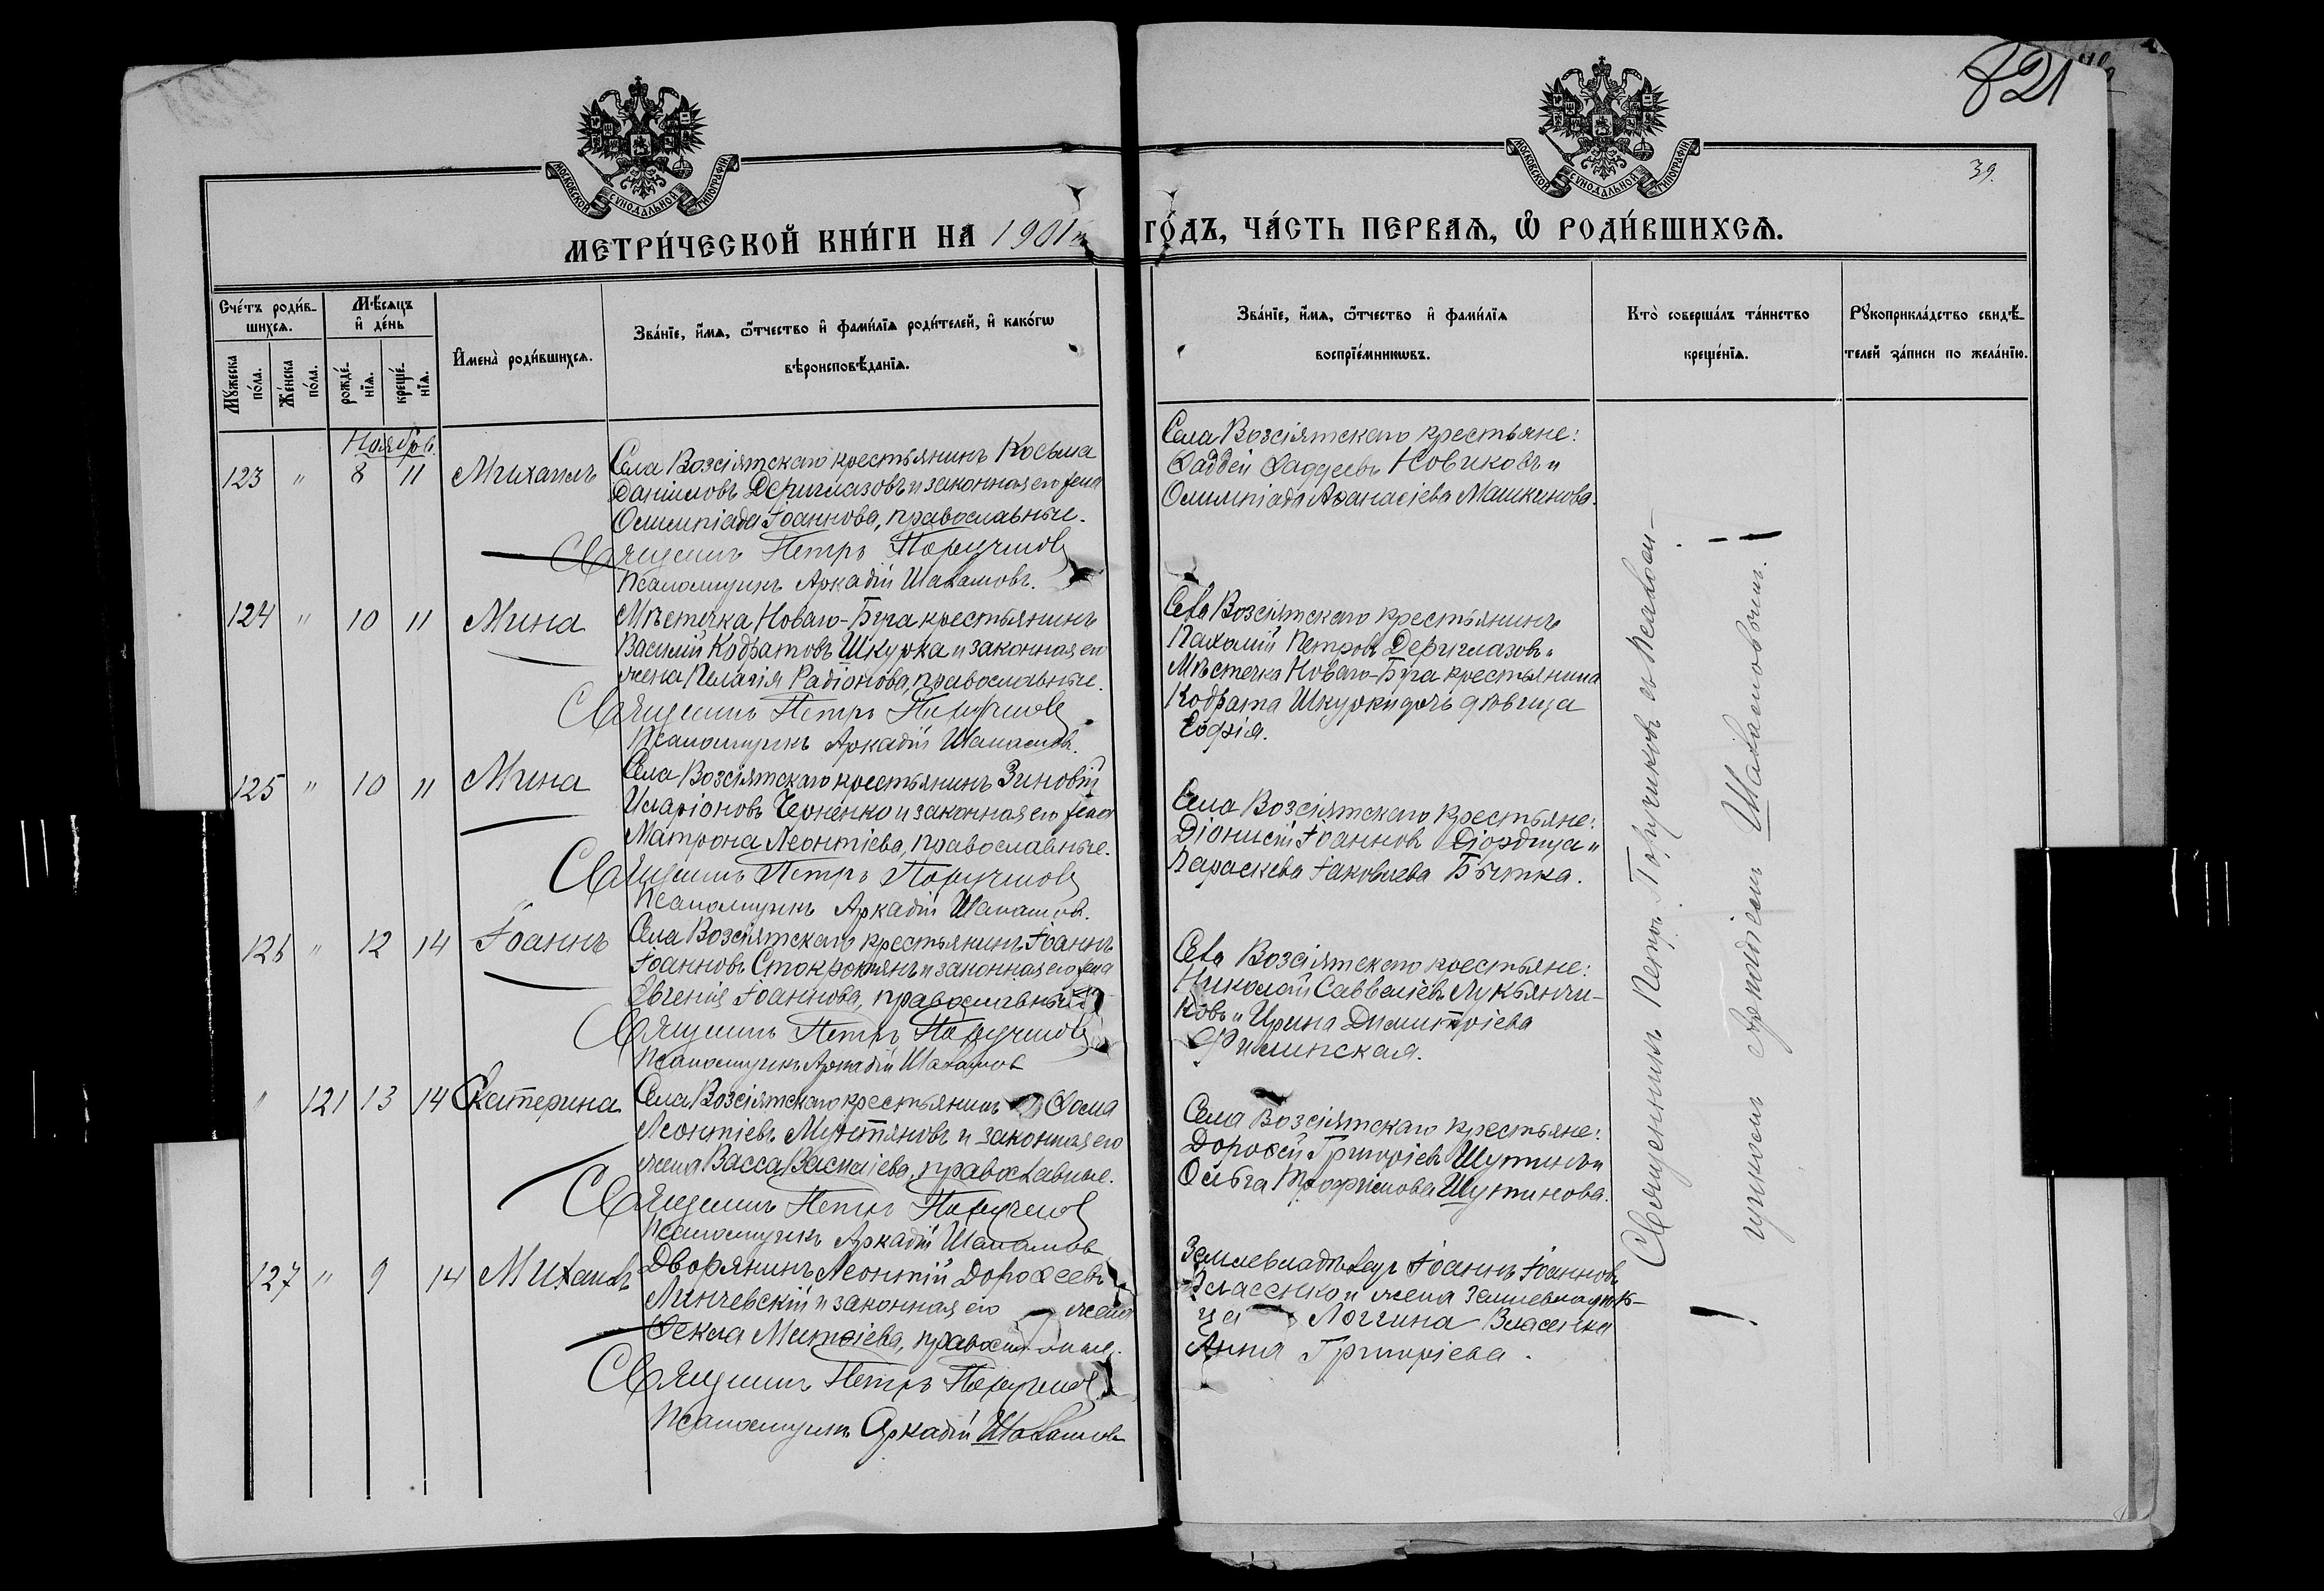 821
39.
МОСКОВСКОЙ СѴНОДАЛЬНОЙ ТИПОГРАФІИ
МОСКОВСКОЙ СѴНОДАЛЬНОЙ ТИПОГРАФІИ
МЕТРИ́ЧЕСКОЙ КНИ́ГИ НА 1901й ГО́ДЪ, ЧА́СТЬ ПЕРВАѦ, Ѡ҆ РОДИ́ВШИХСѦ.
Сче́тъ роди́в-
шихсѧ.
Мꙋ́жеска по́ла.
Же́нска по́ла.
Мѣ́сѧцъ
и҆ де́нь
рожде́нїѧ.
креще́нїѧ.
И҆мена̀ роди́вшихсѧ.
Зва́нїе, и҆́мѧ, ѻ҆́тчество и҆ фами́лїѧ роди́телей, и҆ како́гѡ
вѣроисповѣ́данїѧ.
Зва́нїе, и҆́мѧ, ѻ҆́тчество и҆ фами́лїѧ
воспрїе́мникѡвъ.
Кто̀ соверша́лъ та́инство
креще́нїѧ.
Рꙋкоприкла́дство свидѣ́-
телей за́писи по жела́нїю.
Ноябрь.
123 " 8 11 Михаилъ
Села Возсіятскаго крестьянинъ Косьма
Даніиловъ Дериглазовъ и законная его жена
Олимпіада Іоаннова, православные.
Священникъ Петръ Поручиковъ
Псаломщикъ Аркадій Шаламовъ.
Села Возсіятскаго крестьяне:
Ѳаддей Ѳаддеевъ Новиковъ и
Олимпіада Аѳанасіева Машкинова.
124 " 10 11 Мина
Мѣстечка Новаго-Буга крестьянинъ
Василій Кодратовъ Шкурка и законная его
жена Пелагія Радіонова, православные.
Священникъ Петръ Поручиковъ
Псаломщикъ Аркадій Шаламовъ.
Села Возсіятскаго крестьянинъ
Пахомій Петровъ Дериглазовъ и
Мѣстечка Новаго-Буга крестьянина
Кодрата Шкурки дочь дѣвица
Софія.
125 " 10 11 Мина
Села Возсіятскаго крестьянинъ Зиновій
Иларіоновъ Черненко и законная его жена
Матрона Леонтіева, православные.
Священникъ Петръ Поручиковъ
Псаломщикъ Аркадій Шаламовъ.
Села Возсіятскаго крестьяне:
Діонисій Іоанновъ Діордица и
Параскева Іаковлева Бытка.
126 " 12 14 Іоаннъ
Села Возсіятскаго крестьянинъ Іоаннъ
Іоанновъ и законная его жена
Евгенія Іоаннова, православные
Священникъ Петръ Поручиковъ
Псаломщикъ Аркадій Шаламовъ
Села Возсіятскаго крестьяне:
Николай Савелiевъ Лукьянчи-
ковъ и Ирина Димитріева
Филинская.
" 121 13 14 Екатерина
Села Возсіятскаго крестьянинъ Ѳома
Леонтіевъ Мунтяновъ и законная его
жена Васса Василіева, православные.
Священникъ Петръ Поручиковъ
Псаломщикъ Аркадій Шаламовъ
Села Возсіятскаго крестьяне:
Дороѳей Григоріевъ Шутинъ и
Ольга Трофимова Шутинова.
127 " 9 14 Михаилъ
Дворянинъ Леонтій Дороѳеевъ
Линчевскій и законная его жена
Ѳекла Матѳіева, православные.
Священникъ Петръ Поручиковъ
Псаломщикъ Аркадій Шаламовъ
Землевладѣлецъ Іоаннъ Іоанновъ
Власенко и жена землевладѣль-
ца Логгина Власенка
Анна Григоріева.
Священникъ Петръ Поручиковъ съ псалом-
щикомъ Аркадіемъ Шаламовымъ.